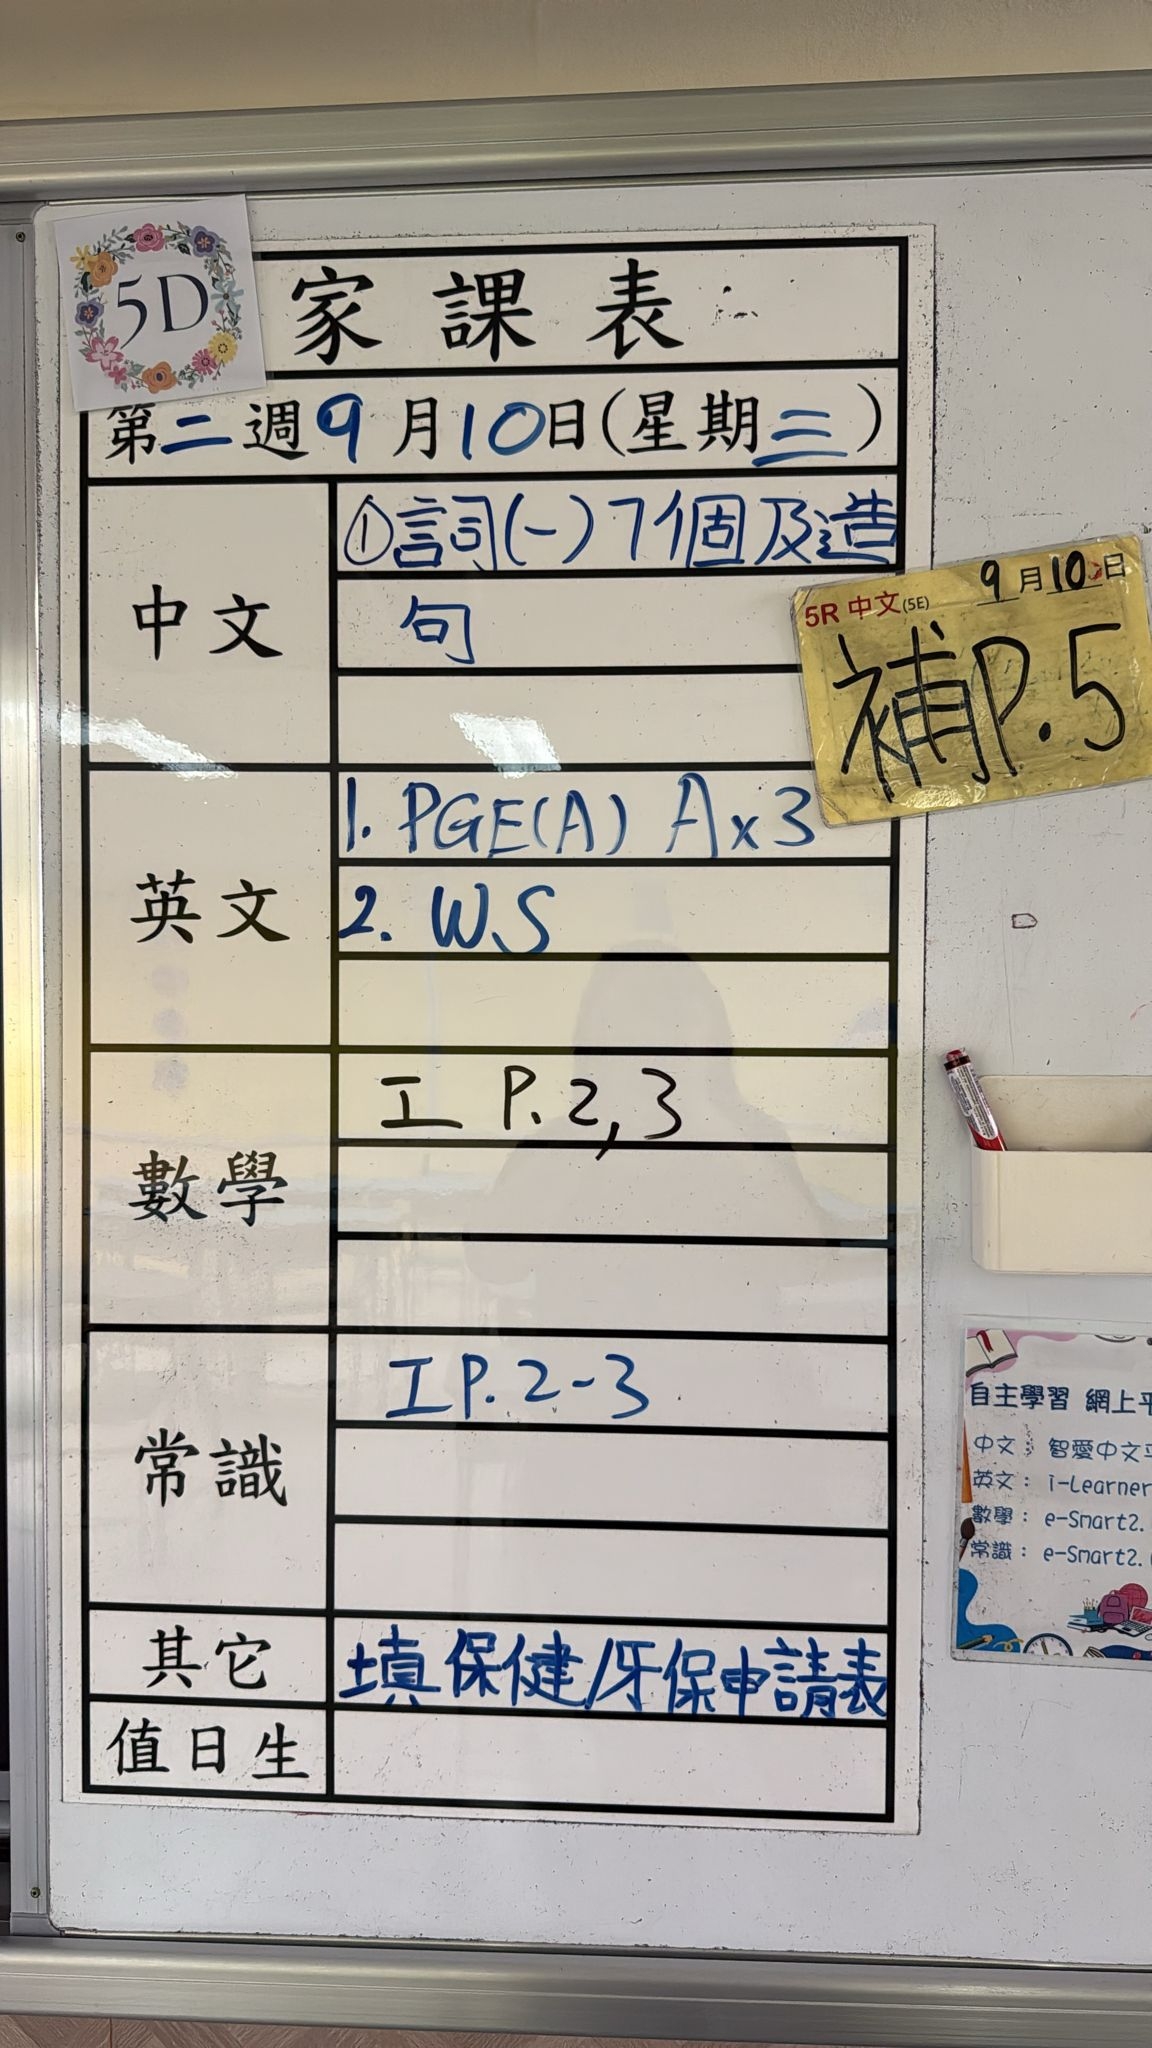 5D
家課表
第二週9月10日(星期三)
中文
①詞(一)7個及造
句
5R 中文(5E) 9月10日
補P.5
英文
1. PGE(A) A x 3
2. W.S
數學
工 P. 2, 3
常識
工 P. 2-3
其它
填保健/牙保申請表
值日生
自主學習 網上平
中文: 智愛中文平
英文: i-Learner
數學: e-Smart2.
常識: e-Smart2.